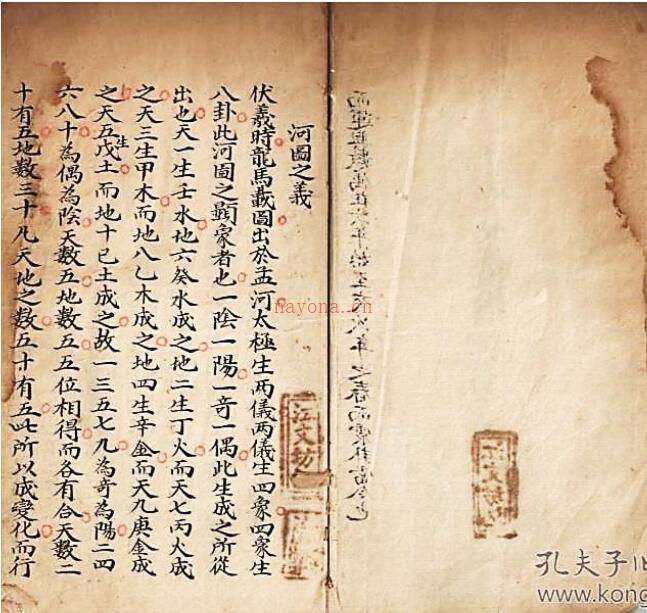 河圖之義
伏羲時龍馬載圖出於孟河太極生兩儀兩儀生四象四象生
八卦此河圖之顯象者也一陰一陽一奇一偶此生成之所從
出也天一生壬水地六癸水成之地二生丁火而天七丙火成
之天三生甲木而地八乙木成之地四生辛金而天九庚金成
之天五生戊土而地十己土成之故一三五七九為奇為陽二四
六八十為偶為陰天數五地數五五位相得而各有合天數二
十有五地數三十凡天地之數五十有五此所以成變化而行
hayona.cn
孔夫子旧
www.kong